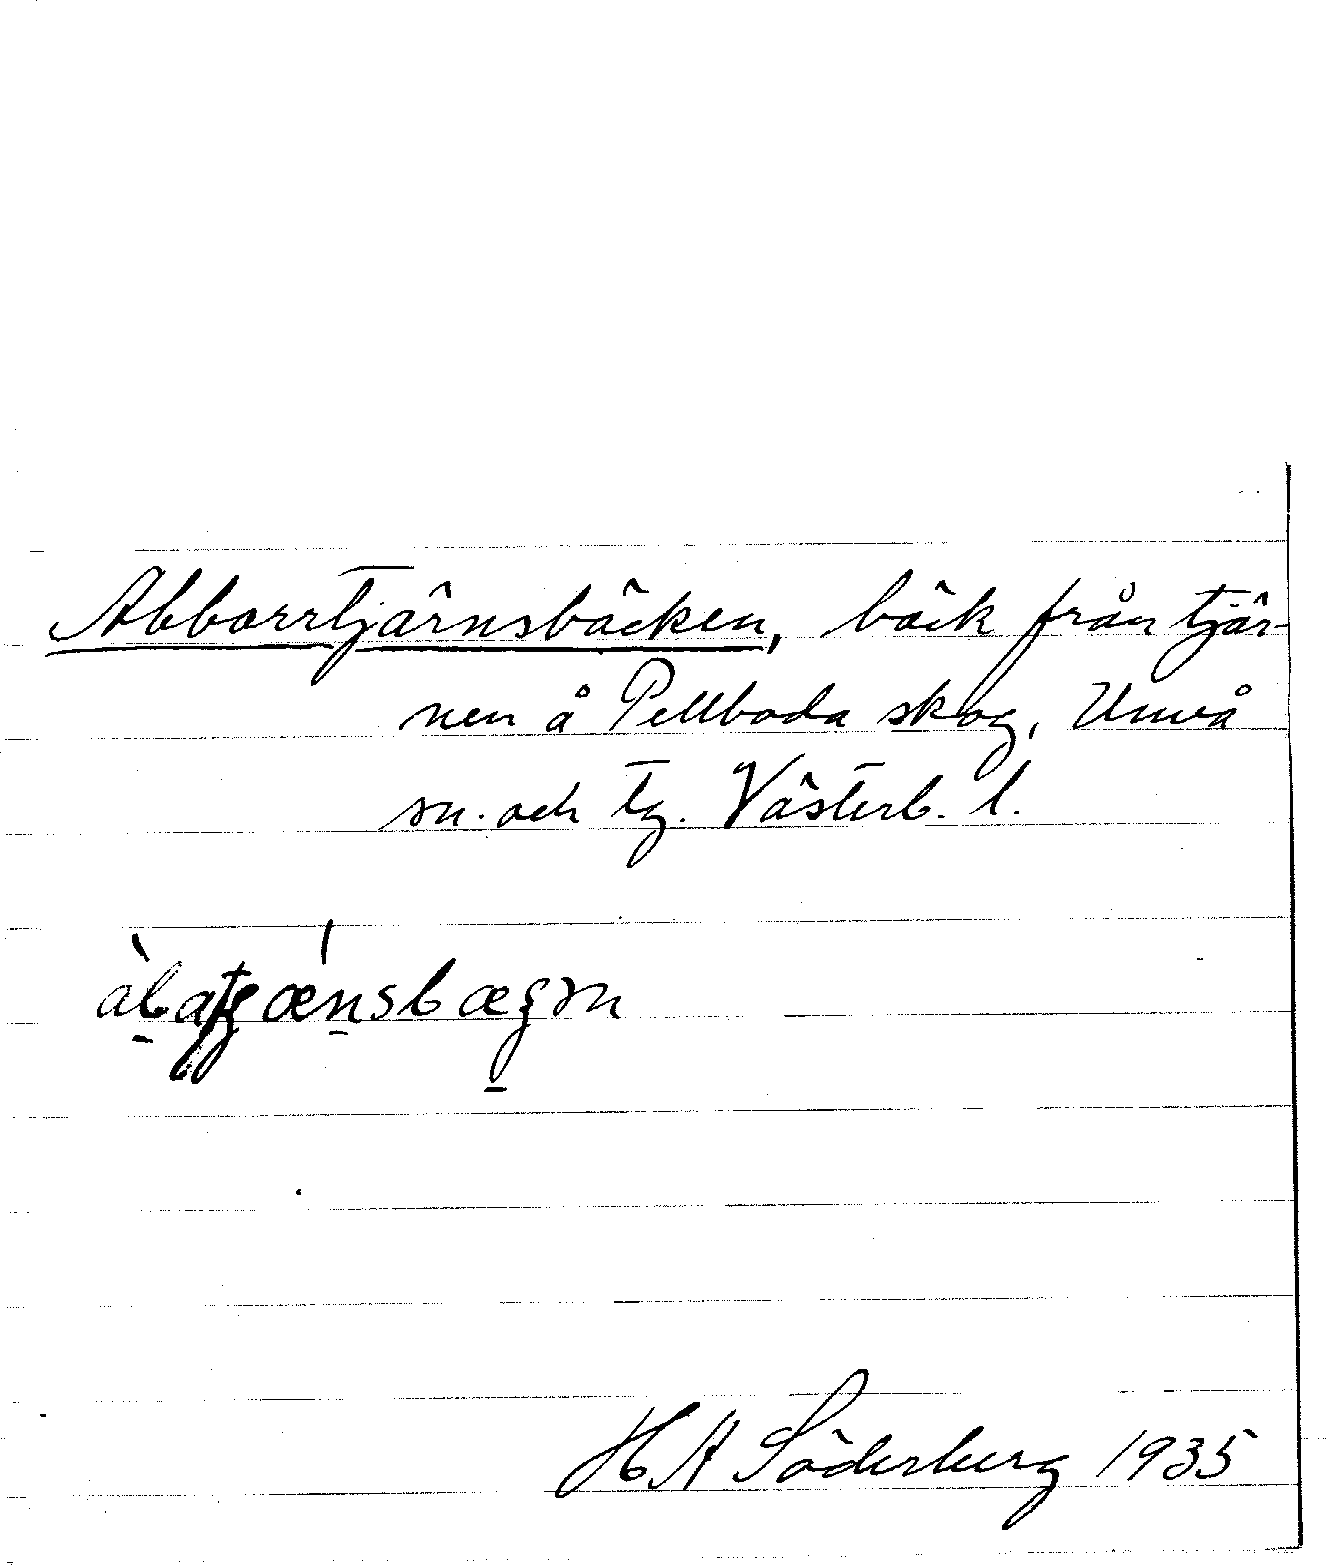 Abborrtjärnsbäcken, bäck från tjär-
nen å Pellboda skog, Umeå
sn. och tg. Västerb. l.
H A Söderberg 1935